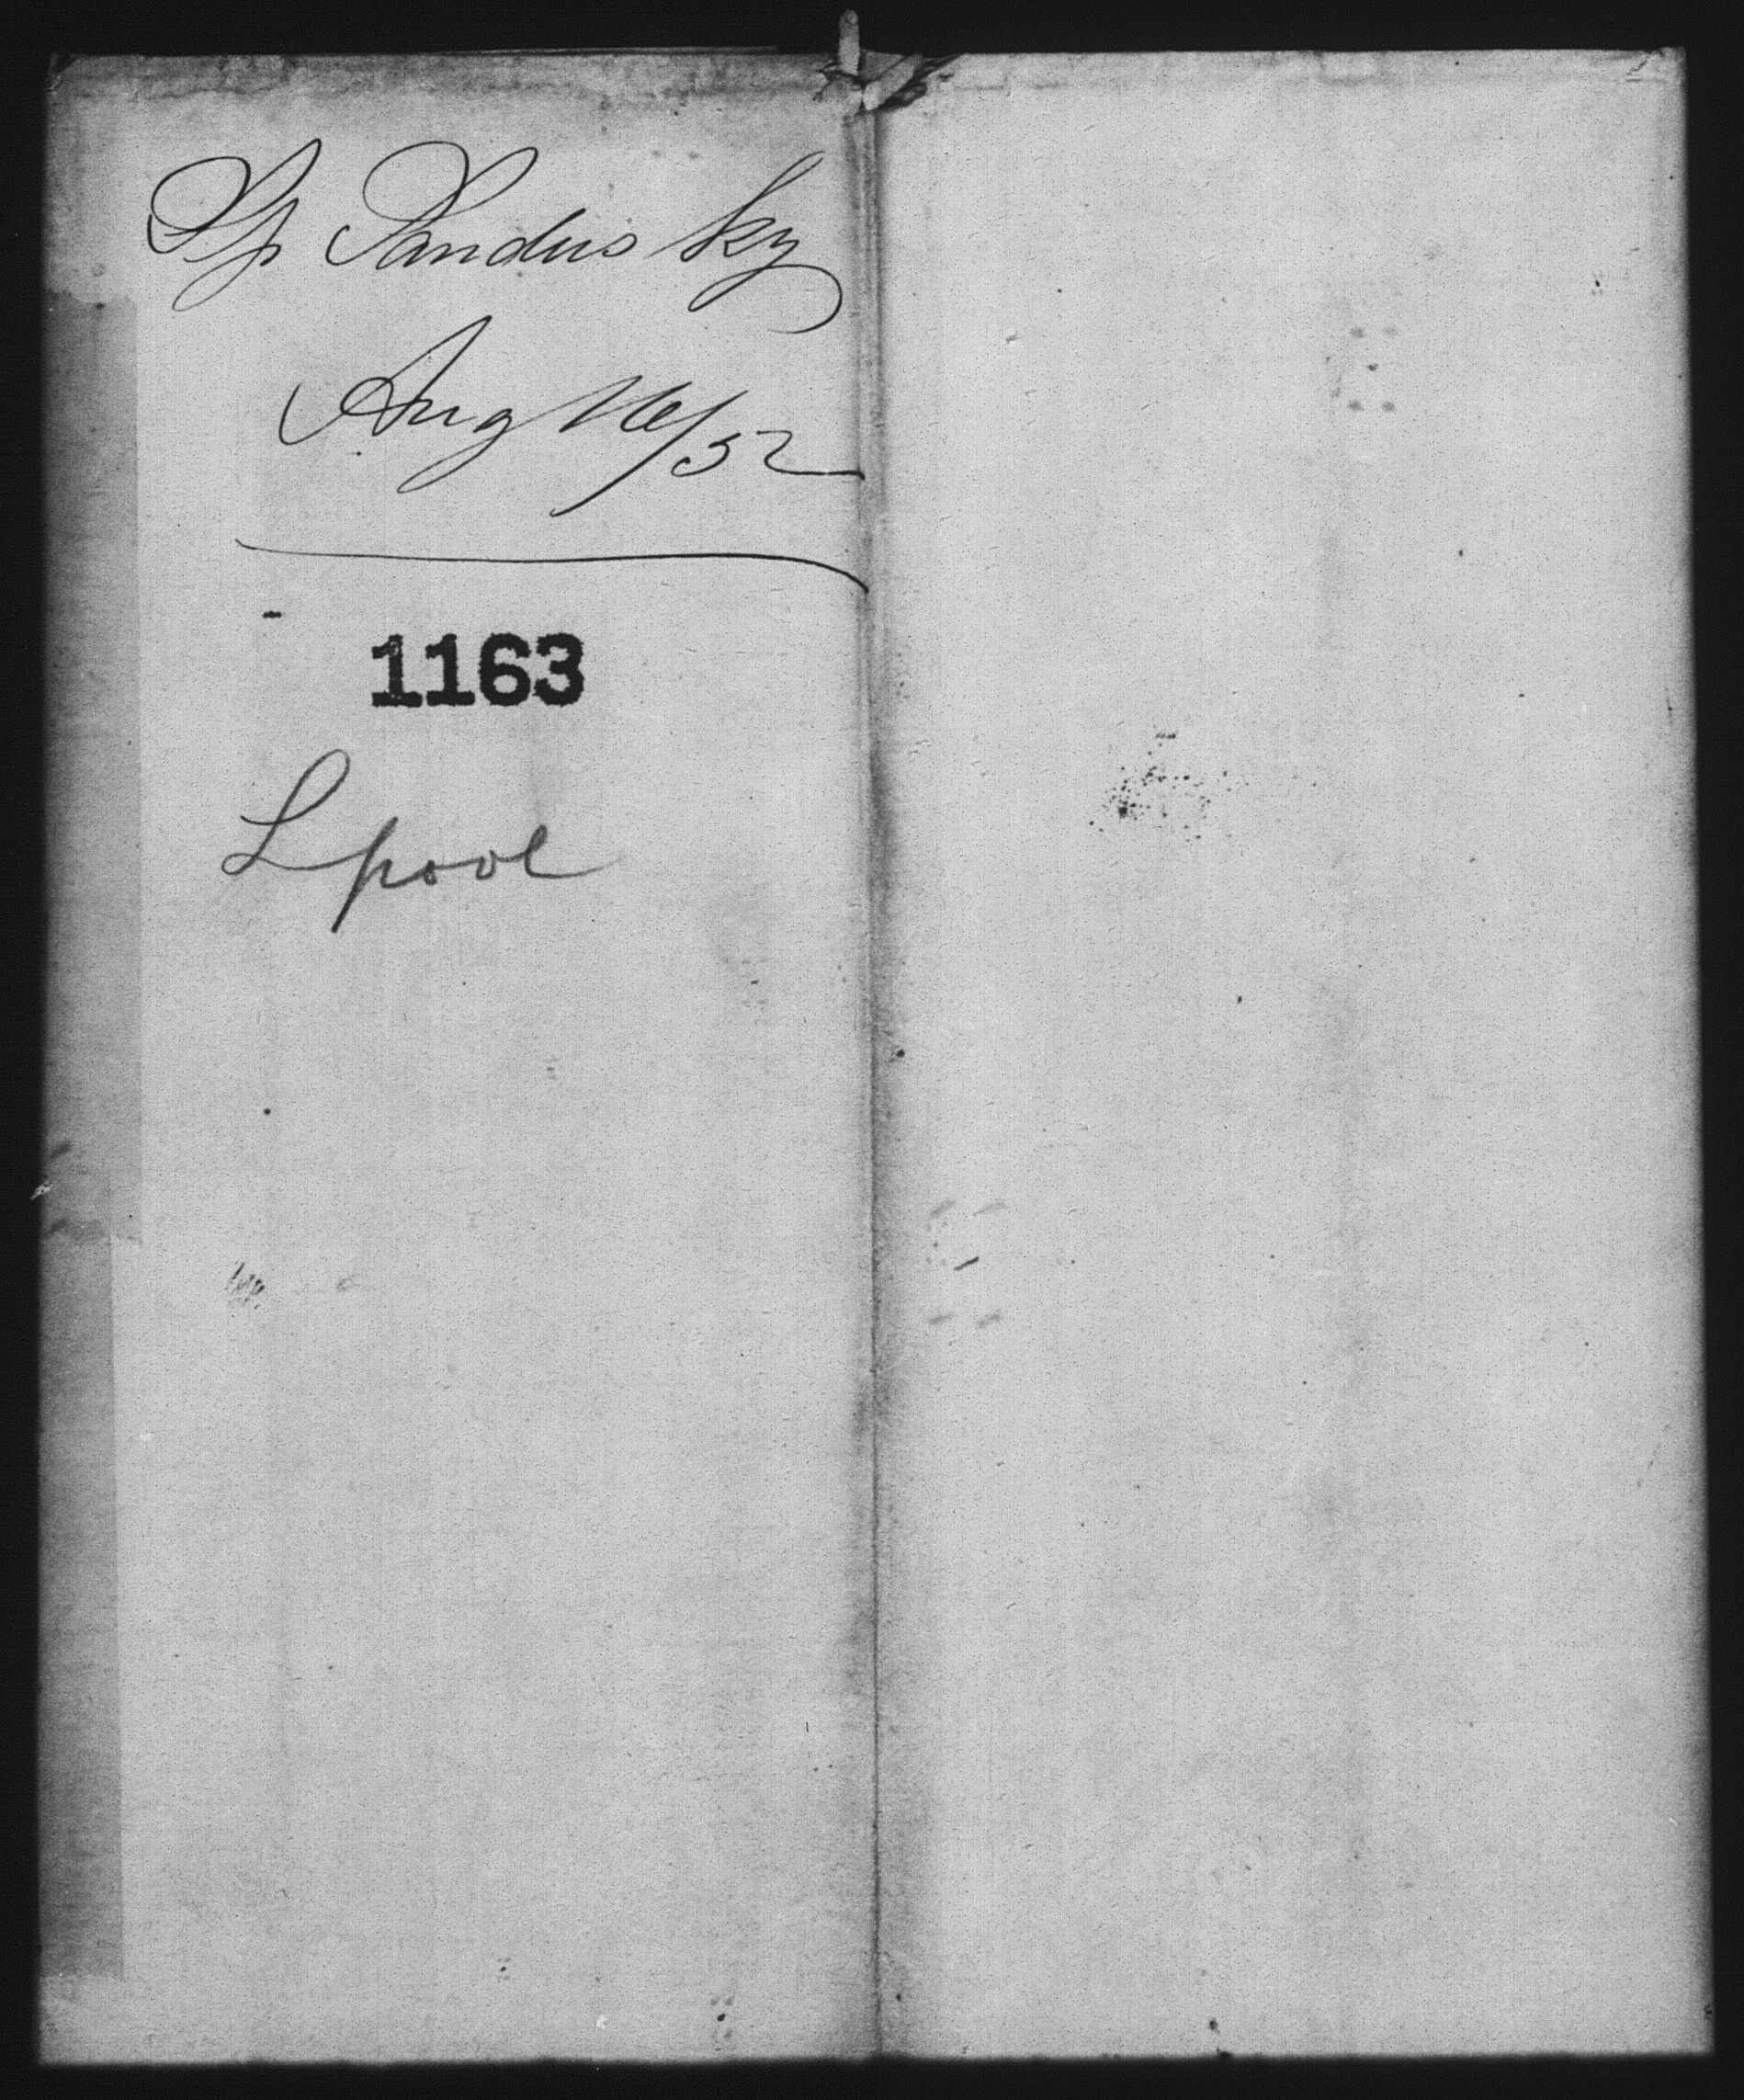 Sp Sandusky
Aug 16/52
1163
Lpool